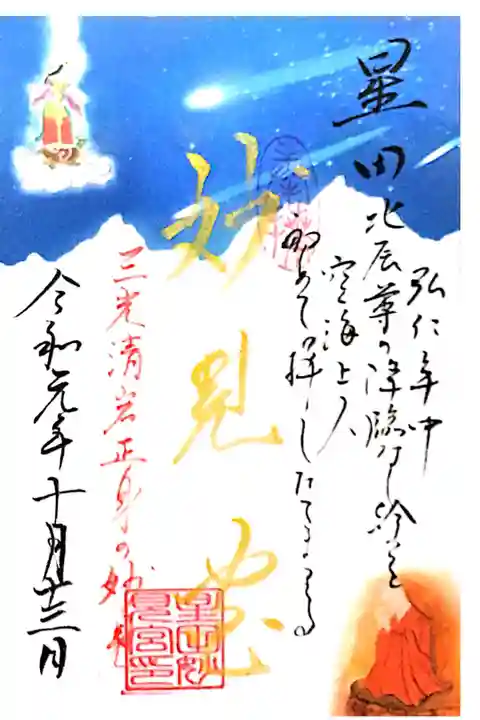 星田
弘仁年中
北辰尊の降臨なし給ふを
空海上人
初めて拝したてまつる
妙見宮
三光清岩正身の妙見
星田妙見宮印
令和元年十月十三日